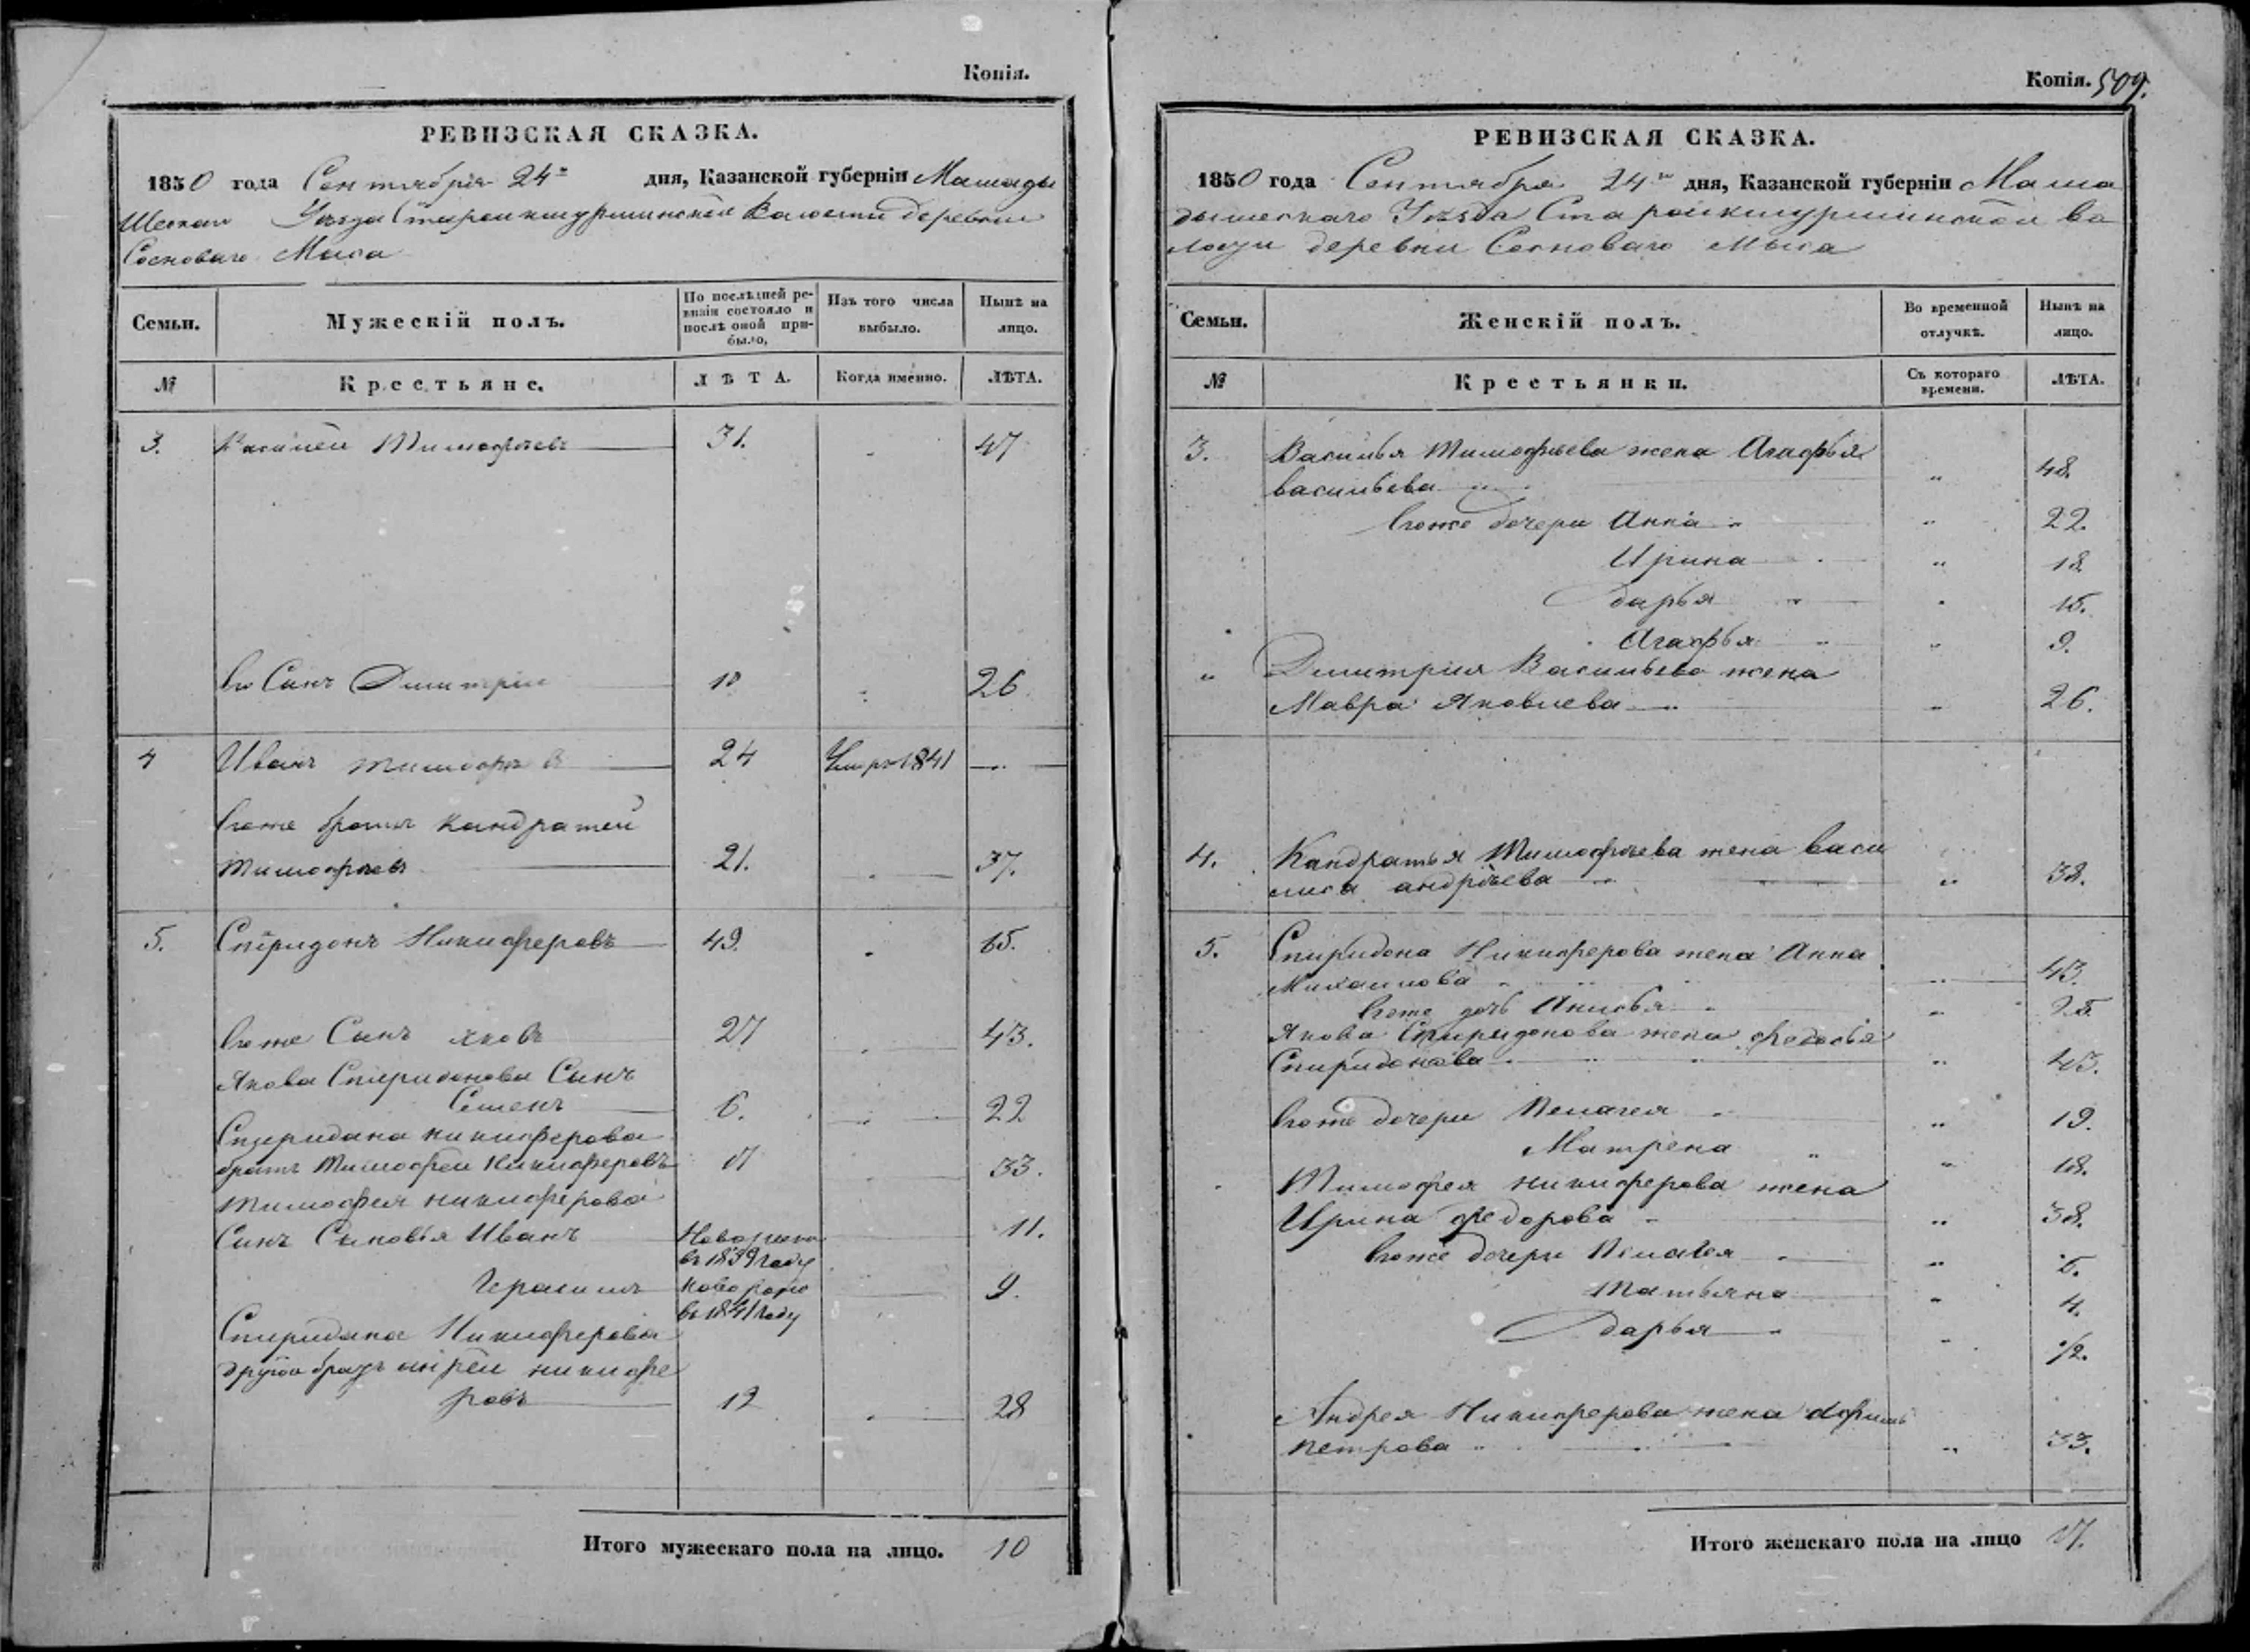 Копія.
РЕВИЗСКАЯ СКАЗКА.
1850 года Сентября 24го дня, Казанской губерніи Мамады
шескаго Уѣзда Старокишурминской Волости деревни
Сосноваго Мыса
Семьи.
Мужескій полъ.
По послѣдней ре-
визіи состояло и
послѣ оной при-
было,
Изъ того числа
выбыло.
Нынѣ на
лицо.
№
Крестьяне.
ЛѢТА.
Когда именно.
ЛѢТА.
3. Василей Тимофѣевъ 31. 47
Его Сынъ Димитрій 10 26
4 Иванъ Тимофѣевъ 24 Умръ 1841
Егоже братъ Кандратей
Тимофѣевъ 21. 37.
5. Спиридонъ Никиферовъ 49. 65.
Егоже Сынъ Яковъ 27 43.
Якова Спиридонова Сынъ
Семенъ 6. 22
Спиридона Никиферова
братъ Тимофей Никиферовъ 17 33.
Тимофея Никиферова
Сынъ Сыновья Иванъ Новорожд 11.
въ 1839 году
Герасимъ Новорож 9.
въ 1841 году
Спиридона Никиферова
другой братъ Никифе
ровъ 12 28
Итого мужескаго пола на лицо. 10
Копія. 509.
РЕВИЗСКАЯ СКАЗКА.
1850 года Сентября 24го дня, Казанской губерніи Мама
дышескаго Уѣзда Старокишурминской во
лости деревни Сосноваго Мыса
Семьи.
Женскій полъ.
Во временной
отлучкѣ.
Нынѣ на
лицо.
№
Крестьянки.
Съ котораго
времени.
ЛѢТА.
3. Василья Тимофѣева жена Агафья
Васильева " 48.
Егоже дочери Анна " 22.
Ирина " 18.
Дарья " 15.
Агафья " 9.
" Димитрия Васильева жена
Мавра Яковлева " 26.
4. Кандратья Тимофѣева жена Васи
лиса Андрѣева " 38.
5. Спиридона Никиферова жена Анна
Михаилова " 43.
Егоже дочь Анисья " 25.
Якова Спиридонова жена Федосья
Спиридонова " 45.
Егоже дочери Пелагея " 19.
Матрена " 18.
Тимофея Никиферова жена
Ирина Федорова " 38.
Егоже дочери Пелагея " 5.
Татьяна " 4.
Дарья " 1/2.
Андрея Никиферова жена Афимь
Петрова " 33.
Итого женскаго пола на лицо 17.